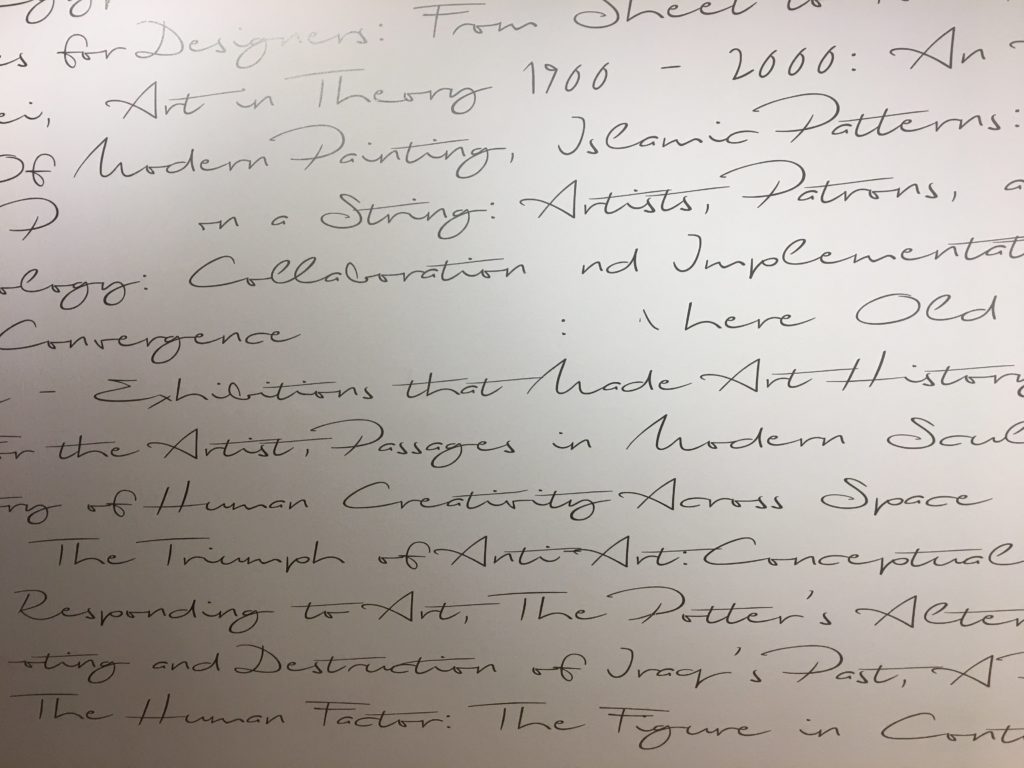 es for Designers: From Sheet to
ei, Art in Theory 1900 - 2000: An
Of Modern Painting, Islamic Patterns:
P on a String: Artists, Patrons, a
ology: Collaboration nd Implementat
Convergence : here Old
- Exhibitions that Made Art History
or the Artist, Passages in Modern Scul
try of Human Creativity Across Space
The Triumph of Anti-Art: Conceptual
Responding to Art, The Potter's Alter
oting and Destruction of Iraq's Past, A
The Human Factor: The Figure in Cont